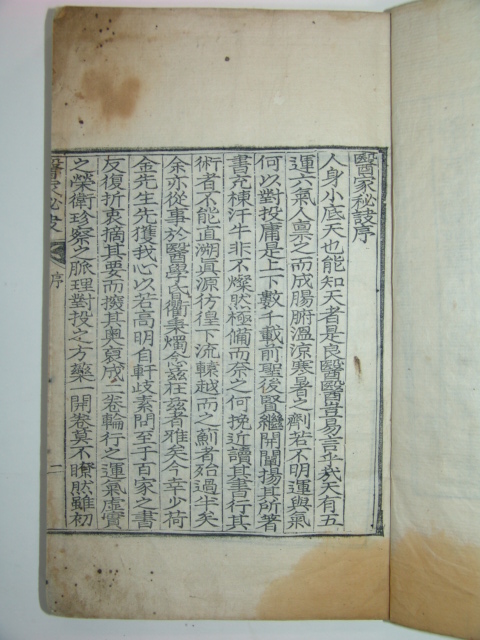 醫家秘訣序
人身小底天也能知天者是良醫醫豈易言乎哉天有五
運六氣人稟之而成腸腑溫涼寒暑之劑若不明運與氣
何以對投庸是上下數千載前聖後賢繼開闡揚其所著
書充棟汗牛非不燦然極備而奈之何挽近讀其書行其
術者不能直溯眞源彷徨下流轅越而之薊者殆過半矣
余亦從事於醫學盲衢秉燭念玆在玆者雅矣今幸少荷
金先生先獲我心以若高明自軒歧素問至于百家之書
反復折衷摘其要而撮其奧裒成二卷輪行之運氣虛實
之榮衛珍察之脈理對投之方藥一開卷莫不瞭然雖初
醫家秘訣 序 一